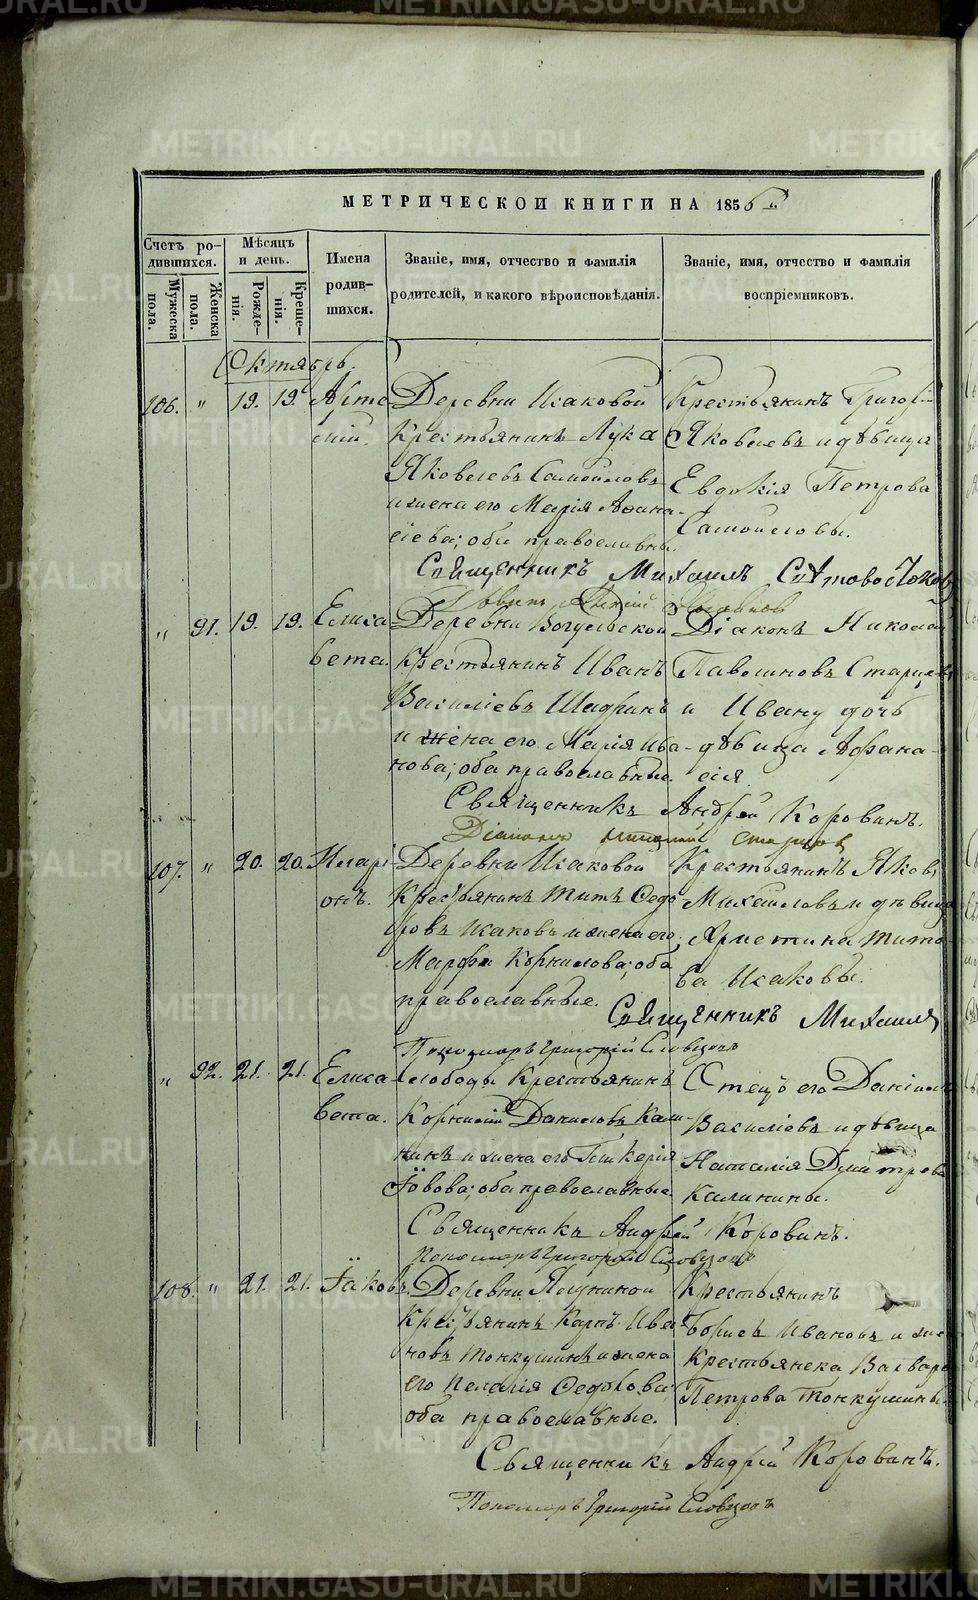 METRIKI.GASO-URAL.RU
МЕТРИЧЕСКОЙ КНИГИ НА 1856
Счетъ родившихся.
Мужеска пола.
Женска пола.
Мѣсяцъ и день.
Рожденія.
Крещенія.
Имена родившихся.
Званіе, имя, отчество и фамилія родителей, и какого вѣроисповѣданія.
Званіе, имя, отчество и фамилія воспріемниковъ.
Октябрь.
106. " 19. 19. Артемій. Деревни Исаковой
Крестьянинъ Лука
Яковлевъ Самойловъ
и жена его Марія Афана-
сіева; оба православные.
Крестьянинъ Григорій
Яковлевъ и дѣвица
Евдокія Петрова
Самойловы.
Священникъ Михаилъ
" 91. 19. 19. Елиса
вета.
Деревни Вогульской
Крестьянинъ Иванъ
Василіевъ Шадринъ
и жена его Марія Ива-
нова; оба православные.
Діаконъ Николай
Старцевъ
и дочь
дѣвица Афана-
сія
Священникъ Андрей Коровинъ.
Діаконъ Николай Старцевъ
107. " 20. 20. Иларі-
онъ.
Деревни Исаковой
Крестьянинъ Титъ Федо
ровъ Исаковъ и жена его
Марфа Корнилова; оба
православные.
Крестьянинъ Яковъ
Михайловъ и дѣвица
Христина Тито-
ва Исаковы.
Священникъ Михаилъ
Пономарь Григорій Словцовъ
" 92. 21. 21. Елиса
вета.
Слободы Крестьянинъ
Корнилій Даниловъ Кали-
нинъ и жена его Гликерія
Іовова; оба православные.
Отецъ его Даніилъ
Василіевъ и дѣвица
Наталія Димитріева
Калинины.
Священникъ Андрей Коровинъ.
Пономарь Григорій Словцовъ
108. " 21. 21. Іаковъ. Деревни
Крестьянинъ Карпъ Ива
новъ Тонкушинъ и жена
его Пелагія Федорова
оба православные.
Крестьянинъ
Борисъ Ивановъ и
Крестьянска Варвара
Петрова Тонкушины
Священникъ Андрей Коровинъ.
Пономарь Григорій Словцовъ